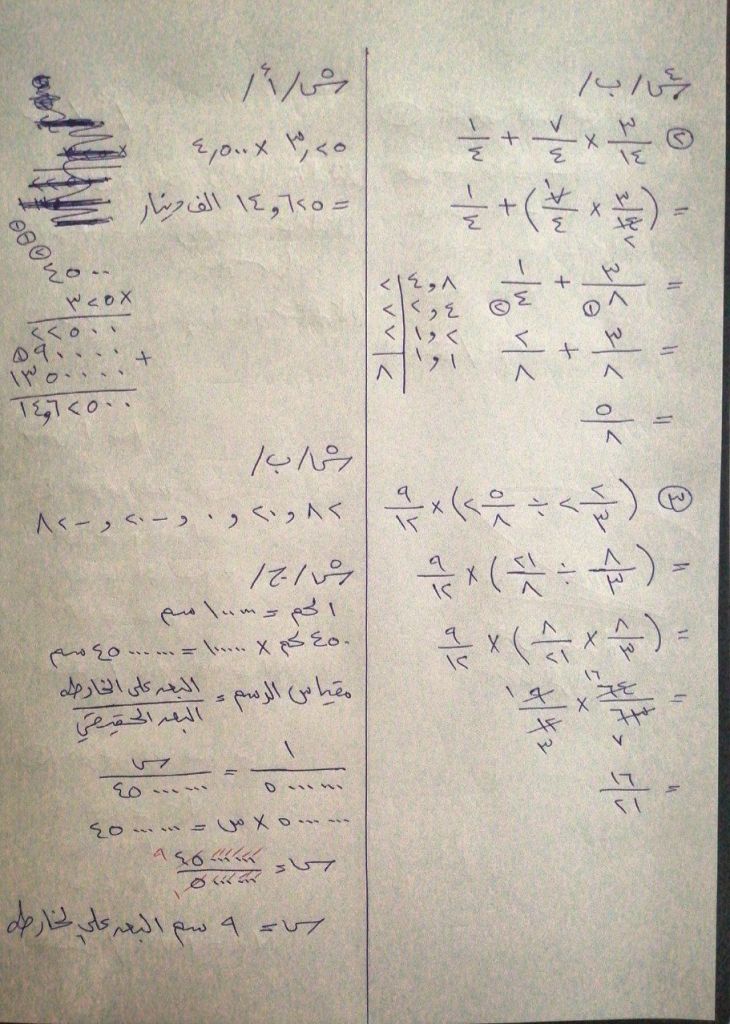 س٤/ب/
② ٣/١٤ × ٧/٤ + ١/٤
= (٣/١٤ × ٧/٤) + ١/٤
٢
= ٣/٨ + ١/٤
① ②
= ٣/٨ + ٢/٨
= ٥/٨
٨,٤ | ٢
٤,٢ | ٢
٢,١ | ٢
١,١ | ٨
③ (٢ ٢/٣ ÷ ٢ ٥/٨) × ٩/١٢
= (٨/٣ ÷ ٢١/٨) × ٩/١٢
= (٨/٣ × ٨/٢١) × ٩/١٢
= ٦٤/٦٣ × ٩/١٢
= ١٦/٢١
س٥/أ/
٣,٢٥ × ٤,٥٠٠
= ١٤,٦٢٥ الف دينار
٤٥٠٠
٣٢٥ ×
٢٢٥٠٠
٩٠٠٠٠ +
١٣٥٠٠٠٠
١٤,٦٢٥٠٠
س٥/ب/
٢٨ , ٢٠ , ٠ , -٢٠ , -٢٨
س٥/ج/
١ كم = ١٠٠٠٠٠ سم
٤٥٠ كم × ١٠٠٠٠٠ = ٤٥٠٠٠٠٠٠ سم
مقياس الرسم = البعد على الخارطة / البعد الحقيقي
١/٥٠٠٠٠٠٠ = س/٤٥٠٠٠٠٠٠
٥٠٠٠٠٠٠ × س = ٤٥٠٠٠٠٠٠
س = ٤٥٠٠٠٠٠٠/٥٠٠٠٠٠٠
س = ٩ سم البعد على الخارطة